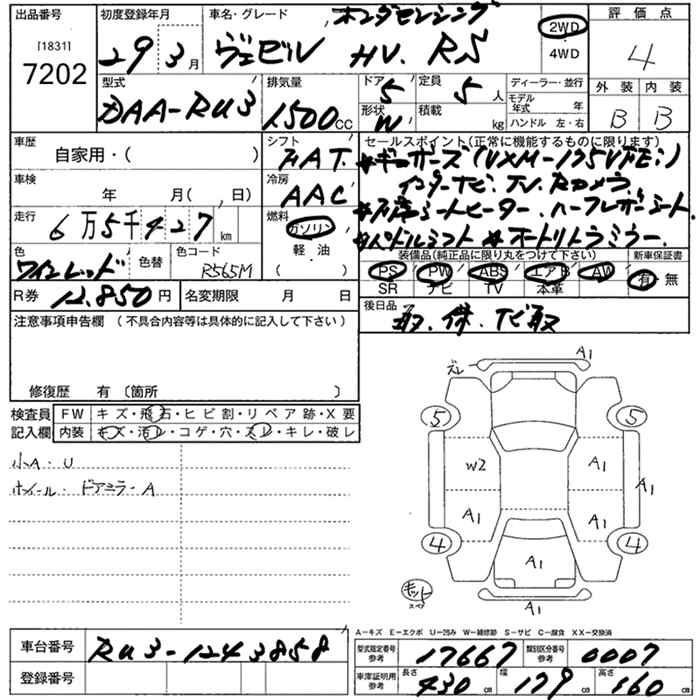 出品番号
[1831]
7202
初度登録年月
29 3月
車名・グレード
ホンダセンシング
ヴェゼル HV. RS
2WD
4WD
評価点
4
外装 内装
B B
型式
DAA-RU3
排気量
1500 CC
ドア
5
定員
5人
形状
W
積載
kg
ディーラー・並行
モデル年式 年
ハンドル 左・右
車歴
自家用・( )
シフト
FAT
冷房
AAC
車検
年 月( , 日)
走行
6万5千427 km
燃料
ガソリン
軽・油
( )
色
ワインレッド
色替
色コード
R565M
R券 12.850円
名変期限 月 日
セールスポイント(正常に機能するものに限ります)
★ギャザーズ(VXM-175VFEi)
インターナビ.TV.Rカメラ
★前席シートヒーター.ハーフレザーシート
★パドルシフト ★オートリトラミラー
装備品(純正品に限り丸をつけて下さい)
PS PW ABS エアB AW
SR ナビ TV 本革
新車保証書
有・無
後日品
取.保.ナビ取
注意事項申告欄(不具合内容等は具体的に記入して下さい)
修復歴 有〔箇所 〕
検査員記入欄
FW キズ・飛石・ヒビ割・リペア跡・X要
内装 キズ・汚レ・コゲ・穴・スレ・キレ・破レ
小A.U
ホイール.ドアミラーA
ズレ
A1
5
5
W2
A1
A1
A1
A1
4
4
A1
キット
スペア
A1
A-キズ E-エクボ U-凹み W-補修跡 S-サビ C-腐食 XX-交換済
車台番号
RU3-1243858
登録番号
型式指定番号 参考
17667
類別区分番号 参考
0007
車庫証明用 参考
長さ 430 cm
幅 179 cm
高さ 160 cm